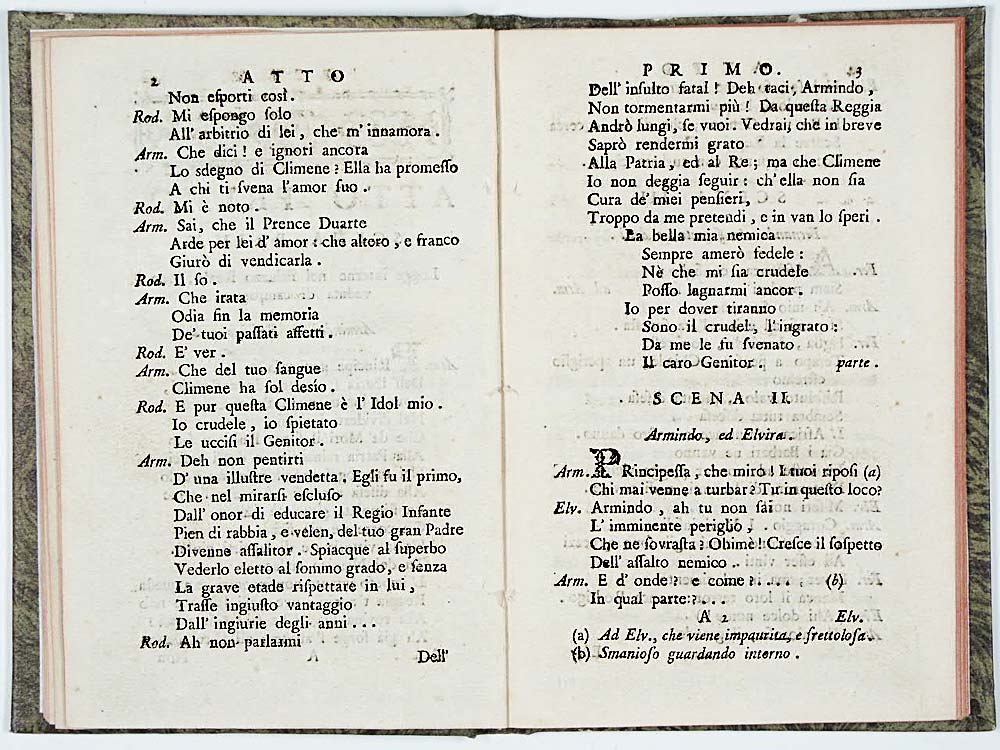 2 ATTO
Non eſporti così.
Rod. Mi eſpongo ſolo
All' arbitrio di lei, che m' innamora.
Arm. Che dici! e ignori ancora
Lo ſdegno di Climene? Ella ha promeſſo
A chi ti ſvena l'amor ſuo.
Rod. Mi è noto.
Arm. Sai, che il Prence Duarte
Arde per lei d' amor: che altero, e franco
Giurò di vendicarla.
Rod. Il ſo.
Arm. Che irata
Odia fin la memoria
De' tuoi paſſati affetti.
Rod. E' ver.
Arm. Che del tuo ſangue
Climene ha ſol deſio.
Rod. E pur queſta Climene è l' Idol mio.
Io crudele, io ſpietato
Le ucciſi il Genitor.
Arm. Deh non pentirti
D' una illuſtre vendetta. Egli fu il primo,
Che nel mirarſi eſcluſo
Dall' onor di educare il Regio Infante
Pien di rabbia, e velen, del tuo gran Padre
Divenne aſſalitor. Spiacque al ſuperbo
Vederlo eletto al ſommo grado, e ſenza
La grave etade riſpettare in lui,
Traſſe ingiuſto vantaggio
Dall' ingiurie degli anni...
Rod. Ah non parlarmi
Dell'
PRIMO. 3
Dell' inſulto fatal! Deh taci, Armindo,
Non tormentarmi più! Da queſta Reggia
Andrò lungi, ſe vuoi. Vedrai, che in breve
Saprò rendermi grato
Alla Patria, ed al Re; ma che Climene
Io non deggia ſeguir: ch' ella non ſia
Cura de' miei penſieri,
Troppo da me pretendi, e in van lo ſperi.
La bella mia nemica
Sempre amerò fedele:
Nè che mi ſia crudele
Poſſo lagnarmi ancor.
Io per dover tiranno
Sono il crudel, l'ingrato:
Da me le fu ſvenato
Il caro Genitor. parte.
SCENA II.
Armindo, ed Elvira.
Arm. PRincipeſſa, che miro! I tuoi ripoſi (a)
Chi mai venne a turbar? Tu in queſto loco?
Elv. Armindo, ah tu non ſai
L' imminente periglio,
Che ne ſovraſta? Ohimè! Creſce il ſoſpetto
Dell' aſſalto nemico..
Arm. E d' onde? e come?.... (b)
In qual parte?...
A 2 Elv.
(a) Ad Elv., che viene impaurita, e frettoloſa.
(b) Smanioſo guardando interno.